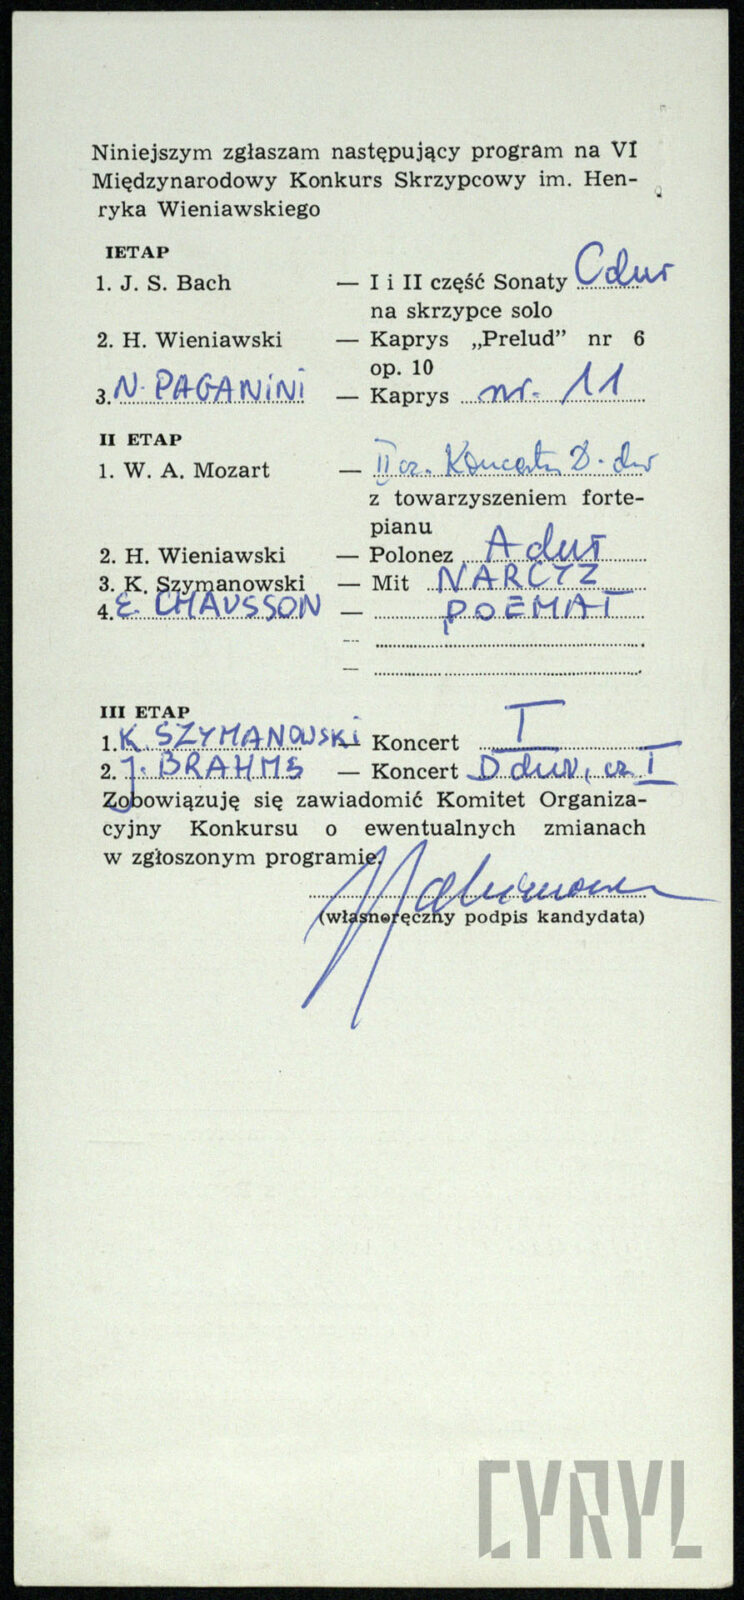 Niniejszym zgłaszam następujący program na VI
Międzynarodowy Konkurs Skrzypcowy im. Hen-
ryka Wieniawskiego
I ETAP
1. J. S. Bach — I i II część Sonaty C dur
na skrzypce solo
2. H. Wieniawski — Kaprys „Prelud” nr 6
op. 10
3. N. PAGANINI — Kaprys nr. 11
II ETAP
1. W. A. Mozart — II cz. Koncertu D-dur
z towarzyszeniem forte-
pianu
2. H. Wieniawski — Polonez A dur
3. K. Szymanowski — Mit NARCYZ
4. E. CHAUSSON — POEMAT
—
—
III ETAP
1. K. SZYMANOWSKI — Koncert I
2. J. BRAHMS — Koncert D dur, cz I
Zobowiązuję się zawiadomić Komitet Organiza-
cyjny Konkursu o ewentualnych zmianach
w zgłoszonym programie.
(własnoręczny podpis kandydata)
CYRYL